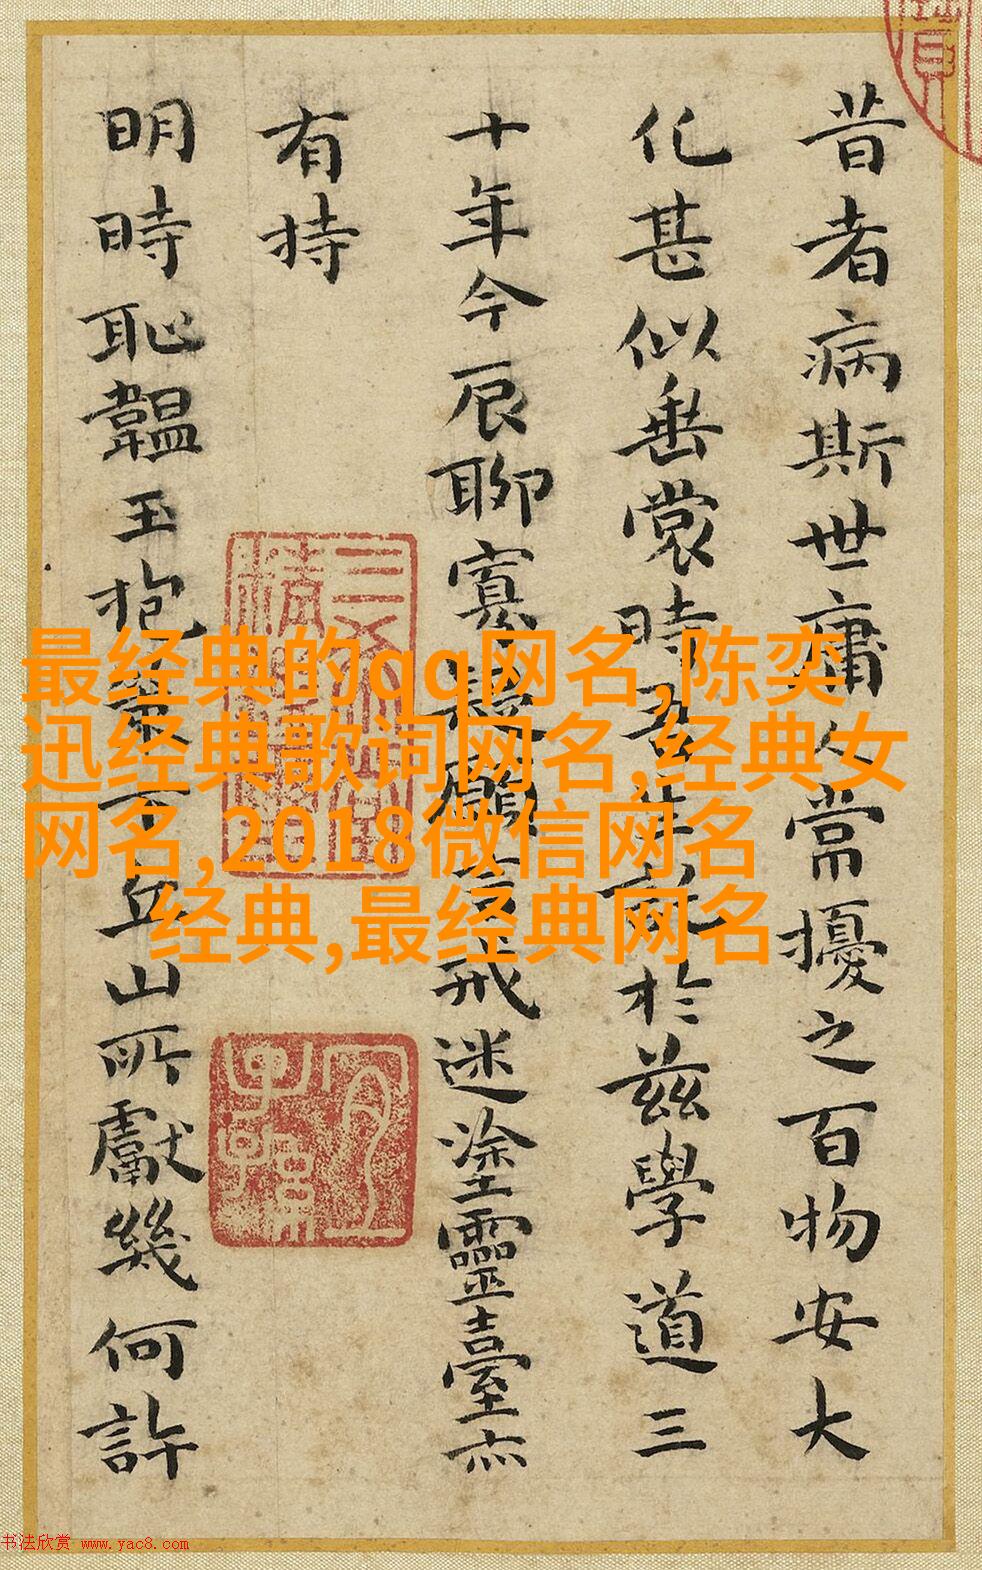 昔者病斯世庸人常擾之百物安大
化甚似垂裳時吾於茲學道三
十年今辰聊寡疑願言戒迷塗靈臺亦
有持
明時恥韞玉抱丘山所獻幾何許
最经典的qq网名,陈奕
迅经典歌词网名,经典女
网名,2018微信网名
经典,最经典网名
书法欣赏 www.yac8.com